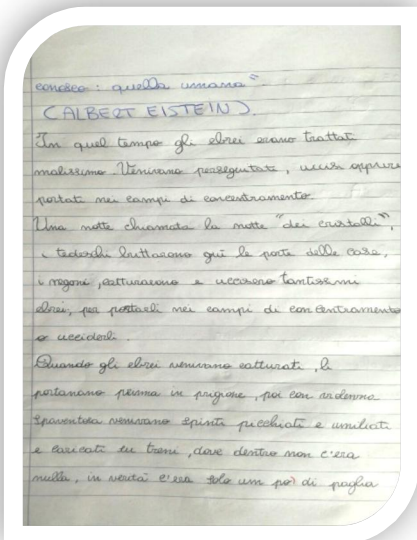 conosco: quella umana"
(ALBERT EISTEIN).
In quel tempo gli ebrei erano trattati
malissimo. Venivano perseguitati, uccisi oppure
portati nei campi di concentramento.
Una notte chiamata la notte "dei cristalli",
i tedeschi buttarono giù le porte delle case,
i negozi, catturarono e uccisero tantissimi
ebrei, per portarli nei campi di concentramento
o ucciderli.
Quando gli ebrei venivano catturati, li
portavano prima in prigione, poi con violenza
spaventosa venivano spinti picchiati e umiliati
e caricati su treni, dove dentro non c'era
nulla, in verità c'era solo un po' di paglia